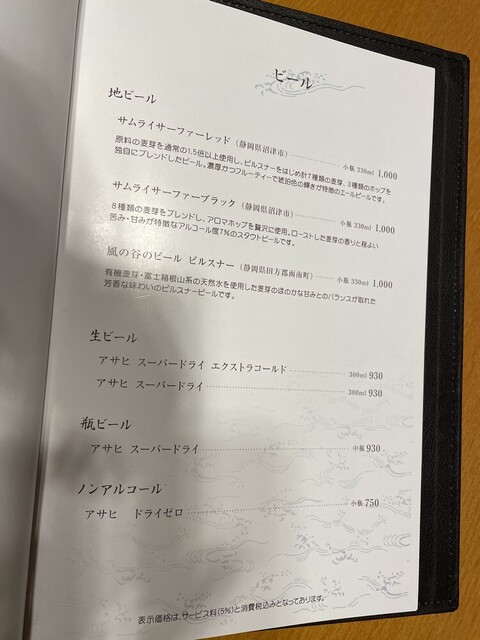 ビール
地ビール
サムライサーファーレッド（静岡県沼津市）………… 小瓶 330ml 1,000
原料の麦芽を通常の1.5倍以上使用し、ピルスナーをはじめ計7種類の麦芽、3種類のホップを
独自にブレンドしたビール。濃厚かつフルーティーで琥珀色の輝きが特徴のエールビールです。
サムライサーファーブラック（静岡県沼津市）………… 小瓶 330ml 1,000
8種類の麦芽をブレンドし、アロマホップを贅沢に使用。ローストした麦芽の香りと程よい
苦み・甘みが特徴なアルコール度7%のスタウトビールです。
風の谷のビール ピルスナー（静岡県田方郡函南町）…… 小瓶 330ml 1,000
有機麦芽・富士箱根山系の天然水を使用した麦芽のほのかな甘みとのバランスが取れた
芳香な味わいのピルスナービールです。
生ビール
アサヒ スーパードライ エクストラコールド ………… 300ml 930
アサヒ スーパードライ ………… 300ml 930
瓶ビール
アサヒ スーパードライ ………… 中瓶 930
ノンアルコール
アサヒ ドライゼロ ………… 小瓶 750
表示価格は、サービス料(5%)と消費税込みとなっております。